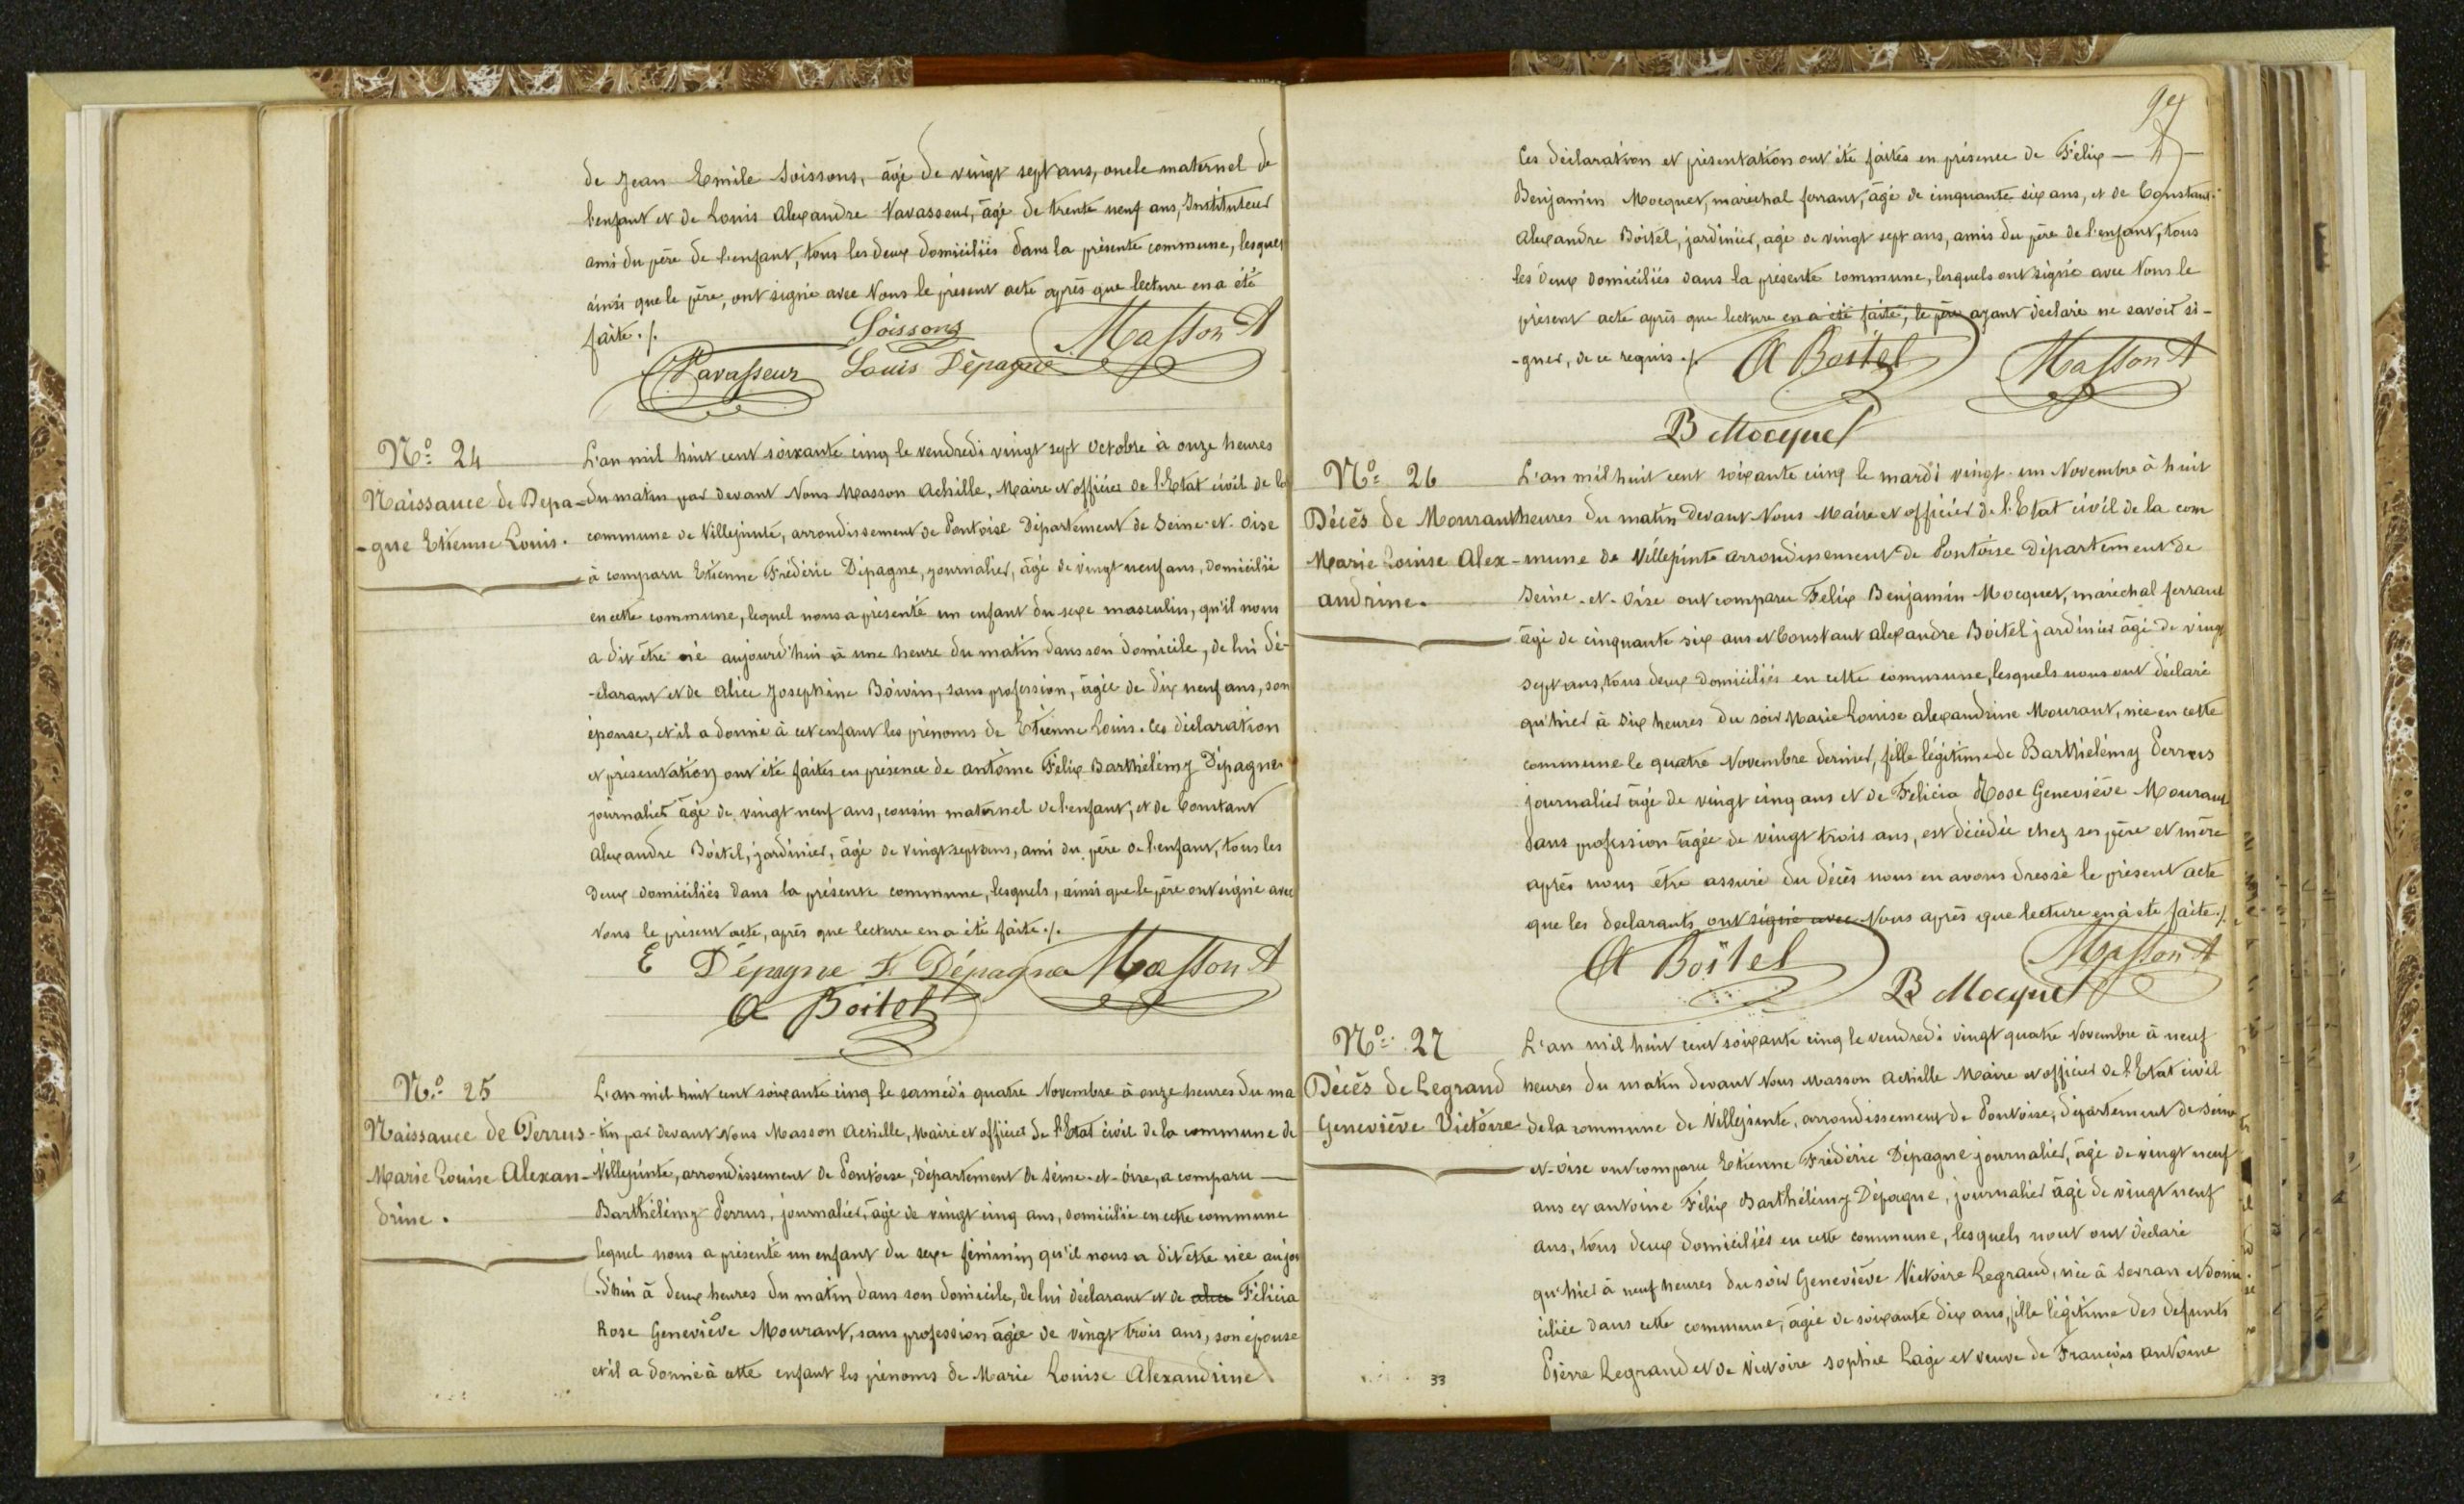 de Jean Emile Soissons, âgé de vingt sept ans, oncle maternel de
l'enfant et de Louis Alexandre Vavasseur, âgé de trente neuf ans, Instituteur
ami du père de l'enfant, tous les deux domiciliés dans la présente commune, lesquels
ainsi que le père, ont signé avec Nous le présent acte après que lecture en a été
faite ./.
Soissons
Masson A
Vavasseur
Louis Dépagne
Nº 24
Naissance de Dépa-
-gne Etienne Louis.
L'an mil huit cent soixante cinq le vendredi vingt sept Octobre à onze heures
du matin par devant Nous Masson Achille, Maire et officier de l'Etat civil de la
commune de Villepinte, arrondissement de Pontoise Département de Seine-et-Oise
à comparu Etienne Frédéric Dépagne, journalier, âgé de vingt neuf ans, domicilié
en cette commune, lequel nous a présenté un enfant du sexe masculin, qu'il nous
a dit être né aujourd'hui à une heure du matin dans son domicile, de lui dé-
-clarant et de Alice Joséphine Boivin, sans profession, âgée de dix neuf ans, son
épouse, et il a donné à cet enfant les prénoms de Etienne Louis. Ces déclaration
et présentation ont été faites en présence de Antoine Félix Barthélémy Dépagne
journalier âgé de vingt neuf ans, cousin maternel de l'enfant, et de Constant
Alexandre Boitel, jardinier, âgé de vingt sept ans, ami du père de l'enfant, tous les
deux domiciliés dans la présente commune, lesquels, ainsi que le père ont signé avec
Nous le présent acte, après que lecture en a été faite ./.
E Dépagne F Dépagne Masson A
A Boitel
Nº 25
Naissance de Perrus
Marie Louise Alexan-
drine.
L'an mil huit cent soixante cinq le samedi quatre Novembre à onze heures du ma
-tin par devant Nous Masson Achille, Maire et officier de l'Etat civil de la commune de
Villepinte, arrondissement de Pontoise, Département de Seine-et-Oise, a comparu —
Barthélémy Perrus, journalier, âgé de vingt cinq ans, domicilié en cette commune
lequel nous a présenté un enfant du sexe féminin qu'il nous a dit être née aujou
-d'hui à deux heures du matin dans son domicile, de lui déclarant et de Félicia
Rose Geneviève Mourant, sans profession âgée de vingt trois ans, son épouse
et il a donné à cette enfant les prénoms de Marie Louise Alexandrine
Ces déclaration et présentation ont été faites en présence de Félix —
Benjamin Mocquet, maréchal ferrant, âgé de cinquante six ans, et de Constant
Alexandre Boitel, jardinier, âgé de vingt sept ans, amis du père de l'enfant, tous
les deux domiciliés dans la présente commune, lesquels ont signé avec Nous le
présent acte après que lecture en a été faite, le père ayant déclaré ne savoir si-
-gner, de ce requis ./.
A Boitel
Masson A
B Mocquet
Nº 26
Décès de Mourant
Marie Louise Alex-
andrine.
L'an mil huit cent soixante cinq le mardi vingt-un Novembre à huit
heures du matin devant Nous Maire et officier de l'Etat civil de la com
-mune de Villepinte arrondissement de Pontoise Département de
Seine-et-Oise ont comparu Félix Benjamin Mocquet, maréchal ferrant
âgé de cinquante six ans et Constant Alexandre Boitel jardinier âgé de vingt
sept ans, tous deux domiciliés en cette commune, lesquels nous ont déclaré
qu'hier à six heures du soir Marie Louise Alexandrine Mourant, née en cette
commune le quatre Novembre dernier, fille légitime de Barthélémy Perrus
journalier âgé de vingt cinq ans et de Félicia Rose Geneviève Mourant
sans profession âgée de vingt trois ans, est décédée chez ses père et mère
après nous être assuré du décès nous en avons dressé le présent acte
que les déclarants ont signé avec Nous après que lecture en a été faite ./.
A Boitel
Masson A
B Mocquet
Nº 27
Décès de Legrand
Geneviève Victoire
L'an mil huit cent soixante cinq le vendredi vingt quatre Novembre à neuf
heures du matin devant Nous Masson Achille Maire et officier de l'Etat civil
de la commune de Villepinte, arrondissement de Pontoise, département de Seine
et-Oise ont comparu Etienne Frédéric Dépagne journalier, âgé de vingt neuf
ans et Antoine Félix Barthélémy Dépagne, journalier âgé de vingt neuf
ans, tous deux domiciliés en cette commune, lesquels nous ont déclaré
qu'hier à neuf heures du soir Geneviève Victoire Legrand, née à Sevran et domi
ciliée dans cette commune, âgée de soixante dix ans, fille légitime des défunts
Pierre Legrand et de Victoire Sophie Lagé et veuve de François Antoine
33